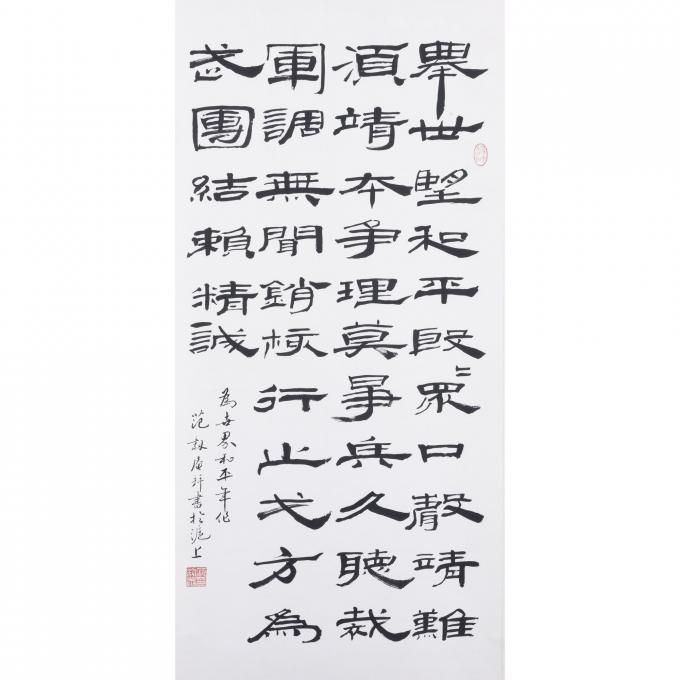 舉世望和平殷〻眾口聲靖難
須靖本爭理莫爭兵久聽裁
軍調無聞銷核行止戈方為
武團結賴精誠
為世界和平年作
范韌庵并書於滬上